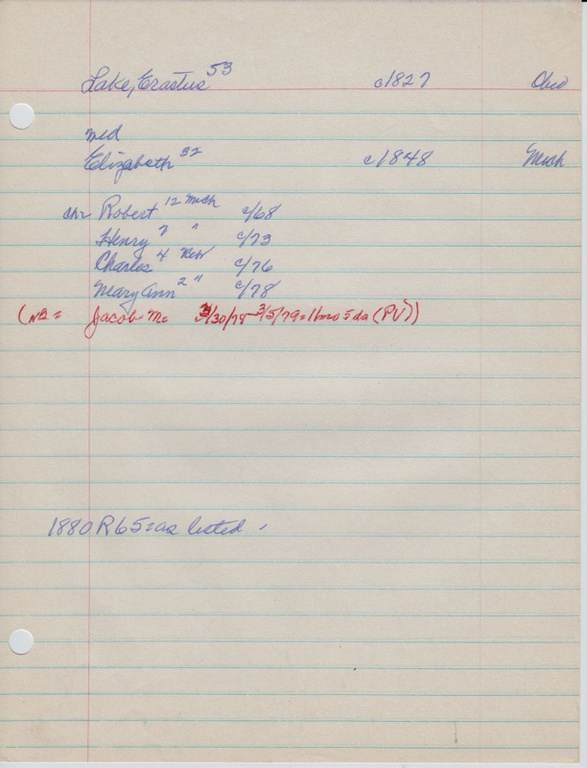 Lake, Erastus 53 c1827 Ohio
md
Elizabeth 32 c1848 Mich
chr Robert 12 Mich c/68
Henry 7 " c/73
Charles 4 c/76
Mary Ann 2 " c/78
(NB = Jacob M. 3/30/78-3/5/79=11mo 5 da (PV))
1880 R65=as listed